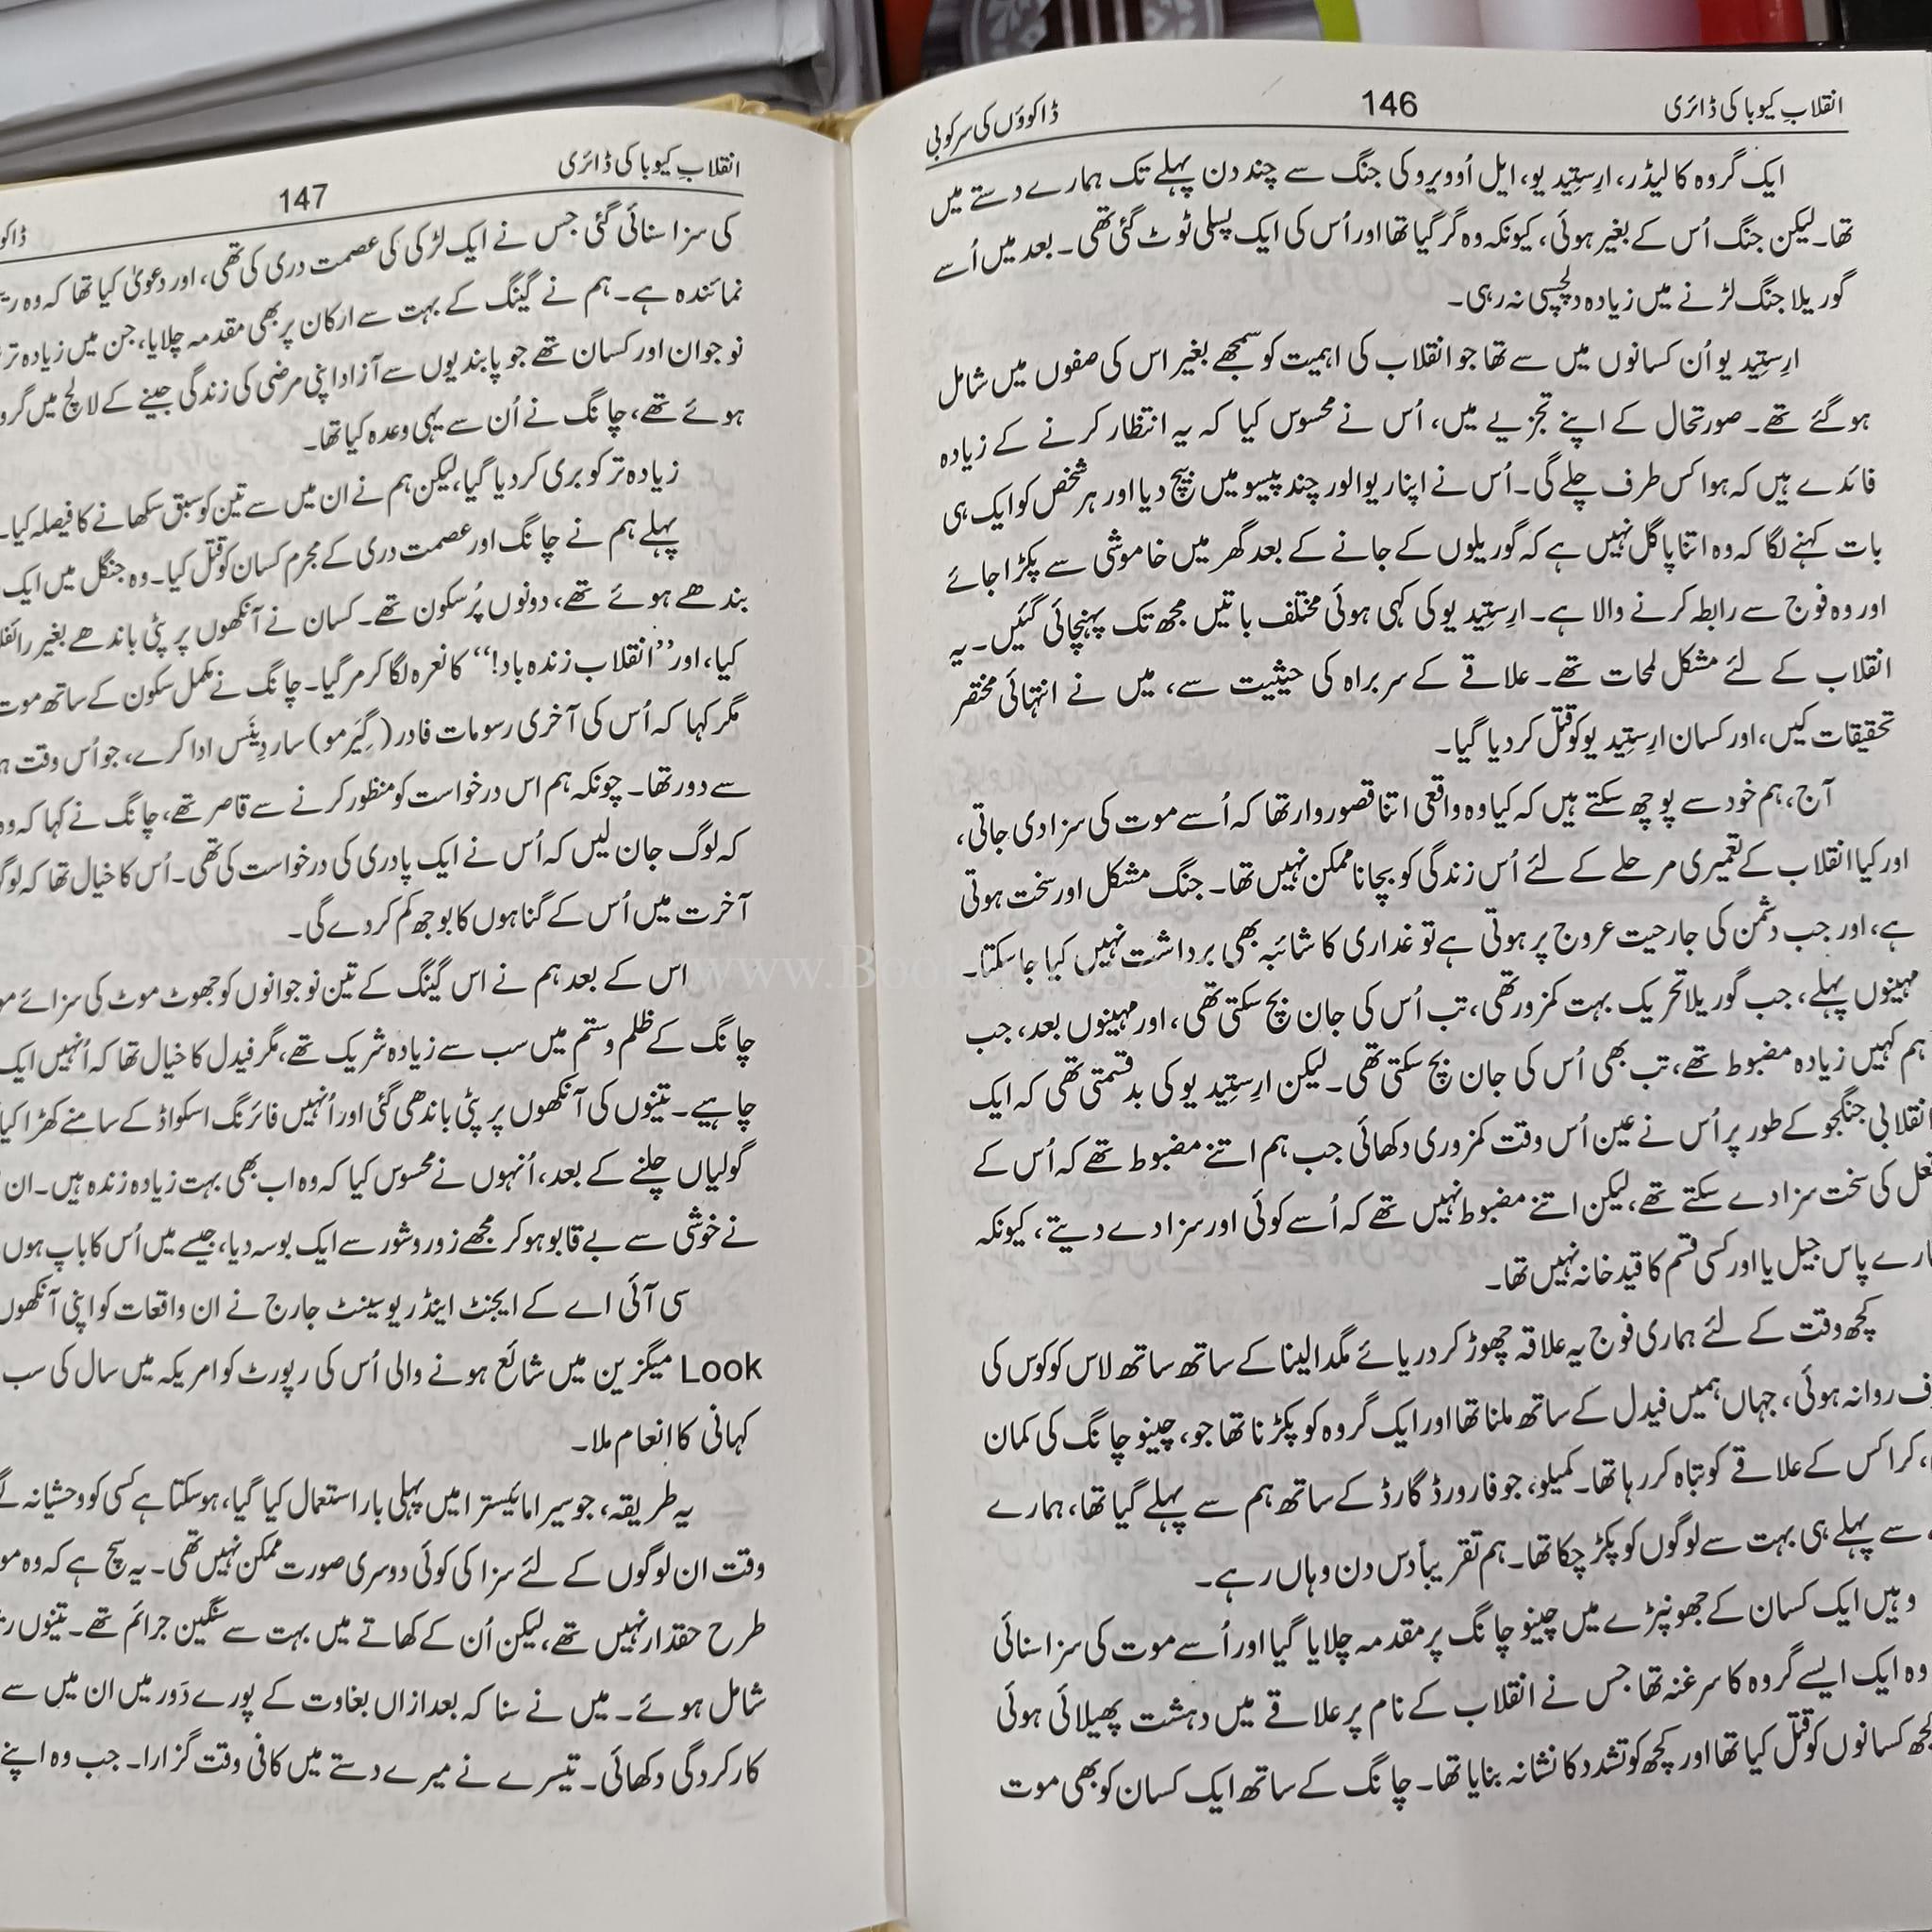 انقلابِ کیوبا کی ڈائری
146
ڈاکوؤں کی سرکوبی
ایک گروہ کا لیڈر، ارِستِید یو، ایل اُوویرو کی جنگ سے چند دن پہلے تک ہمارے دستے میں
تھا۔ لیکن جنگ اُس کے بغیر ہوئی، کیونکہ وہ گر گیا تھا اور اُس کی ایک پسلی ٹوٹ گئی تھی۔ بعد میں اُسے
گوریلا جنگ لڑنے میں زیادہ دلچسپی نہ رہی۔
ارِستِید یو اُن کسانوں میں سے تھا جو انقلاب کی اہمیت کو سمجھے بغیر اس کی صفوں میں شامل
ہو گئے تھے۔ صورتحال کے اپنے تجزیے میں، اُس نے محسوس کیا کہ یہ انتظار کرنے کے زیادہ
فائدے ہیں کہ ہوا کس طرف چلے گی۔ اُس نے اپنا ریوالور چند پیسو میں بیچ دیا اور ہر شخص کو ایک ہی
بات کہنے لگا کہ وہ اتنا پاگل نہیں ہے کہ گوریلوں کے جانے کے بعد گھر میں خاموشی سے پکڑا جائے
اور وہ فوج سے رابطہ کرنے والا ہے۔ ارِستِید یو کی کہی ہوئی مختلف باتیں مجھ تک پہنچائی گئیں۔ یہ
انقلاب کے لئے مشکل لمحات تھے۔ علاقے کے سربراہ کی حیثیت سے، میں نے انتہائی مختصر
تحقیقات کیں، اور کسان ارِستِید یو کو قتل کر دیا گیا۔
آج، ہم خود سے پوچھ سکتے ہیں کہ کیا وہ واقعی اتنا قصوروار تھا کہ اُسے موت کی سزا دی جاتی،
اور کیا انقلاب کے تعمیری مرحلے کے لئے اُس زندگی کو بچانا ممکن نہیں تھا۔ جنگ مشکل اور سخت ہوتی
ہے، اور جب دشمن کی جارحیت عروج پر ہوتی ہے تو غداری کا شائبہ بھی برداشت نہیں کیا جا سکتا۔
مہینوں پہلے، جب گوریلا تحریک بہت کمزور تھی، تب اُس کی جان بچ سکتی تھی، اور مہینوں بعد، جب
ہم کہیں زیادہ مضبوط تھے، تب بھی اُس کی جان بچ سکتی تھی۔ لیکن ارِستِید یو کی بدقسمتی تھی کہ ایک
انقلابی جنگجو کے طور پر اُس نے عین اُس وقت کمزوری دکھائی جب ہم اتنے مضبوط تھے کہ اُس کے
فعل کی سخت سزا دے سکتے تھے، لیکن اتنے مضبوط نہیں تھے کہ اُسے کوئی اور سزا دے دیتے، کیونکہ
پاس جیل یا اور کسی قسم کا قید خانہ نہیں تھا۔
کچھ وقت کے لئے ہماری فوج یہ علاقہ چھوڑ کر دریائے مگدالینا کے ساتھ ساتھ لاس کوکوس کی
روانہ ہوئی، جہاں ہمیں فیدل کے ساتھ ملنا تھا اور ایک گروہ کو پکڑنا تھا جو، چینو چانگ کی کمان
، کراکس کے علاقے کو تباہ کر رہا تھا۔ کمیلو، جو فارورڈ گارڈ کے ساتھ ہم سے پہلے گیا تھا، ہمارے
سے پہلے ہی بہت سے لوگوں کو پکڑ چکا تھا۔ ہم تقریباً دس دن وہاں رہے۔
وہیں ایک کسان کے جھونپڑے میں چینو چانگ پر مقدمہ چلایا گیا اور اُسے موت کی سزا سنائی
وہ ایک ایسے گروہ کا سرغنہ تھا جس نے انقلاب کے نام پر علاقے میں دہشت پھیلائی ہوئی
کچھ کسانوں کو قتل کیا تھا اور کچھ کو تشدد کا نشانہ بنایا تھا۔ چانگ کے ساتھ ایک کسان کو بھی موت
انقلابِ کیوبا کی ڈائری
147
کی سزا سنائی گئی جس نے ایک لڑکی کی عصمت دری کی تھی، اور دعویٰ کیا تھا کہ وہ
نمائندہ ہے۔ ہم نے گینگ کے بہت سے ارکان پر بھی مقدمہ چلایا، جن میں زیادہ تر
نوجوان اور کسان تھے جو پابندیوں سے آزاد اپنی مرضی کی زندگی جینے کے لالچ میں
ہوئے تھے، چانگ نے اُن سے یہی وعدہ کیا تھا۔
زیادہ تر کو بری کر دیا گیا، لیکن ہم نے ان میں سے تین کو سبق سکھانے کا فیصلہ کیا۔
پہلے ہم نے چانگ اور عصمت دری کے مجرم کسان کو قتل کیا۔ وہ جنگل میں ایک
بندھے ہوئے تھے، دونوں پُرسکون تھے۔ کسان نے آنکھوں پر پٹی باندھے بغیر
کیا، اور ’’انقلاب زندہ باد!‘‘ کا نعرہ لگا کر مر گیا۔ چانگ نے مکمل سکون کے ساتھ موت
مگر کہا کہ اُس کی آخری رسومات فادر (گِیَرمو) ساردِینَس ادا کرے، جو اُس وقت
سے دور تھا۔ چونکہ ہم اس درخواست کو منظور کرنے سے قاصر تھے، چانگ نے کہا کہ وہ
کہ لوگ جان لیں کہ اُس نے ایک پادری کی درخواست کی تھی۔ اُس کا خیال تھا کہ
آخرت میں اُس کے گناہوں کا بوجھ کم کر دے گی۔
اس کے بعد ہم نے اس گینگ کے تین نوجوانوں کو جھوٹ موٹ کی سزائے
چانگ کے ظلم و ستم میں سب سے زیادہ شریک تھے، مگر فیدل کا خیال تھا کہ اُنہیں ایک
چاہیے۔ تینوں کی آنکھوں پر پٹی باندھی گئی اور اُنہیں فائرنگ اسکواڈ کے سامنے کھڑا کیا
گولیاں چلنے کے بعد، اُنہوں نے محسوس کیا کہ وہ اب بھی بہت زیادہ زندہ ہیں۔ ان
نے خوشی سے بے قابو ہو کر مجھے زور و شور سے ایک بوسہ دیا، جیسے میں اُس کا باپ ہوں
سی آئی اے کے ایجنٹ اینڈریو سینٹ جارج نے ان واقعات کو اپنی آنکھوں
Look میگزین میں شائع ہونے والی اُس کی رپورٹ کو امریکہ میں سال کی سب
کہانی کا انعام ملا۔
یہ طریقہ، جو سیرا مائیسترا میں پہلی بار استعمال کیا گیا، ہو سکتا ہے کسی کو وحشیانہ
وقت ان لوگوں کے لئے سزا کی کوئی دوسری صورت ممکن نہیں تھی۔ یہ سچ ہے کہ وہ
طرح حقدار نہیں تھے، لیکن اُن کے کھاتے میں بہت سے سنگین جرائم تھے۔ تینوں
شامل ہوئے۔ میں نے سنا کہ بعد ازاں بغاوت کے پورے دَور میں ان میں سے
کارکردگی دکھائی۔ تیسرے نے میرے دستے میں کافی وقت گزارا۔ جب وہ اپنے